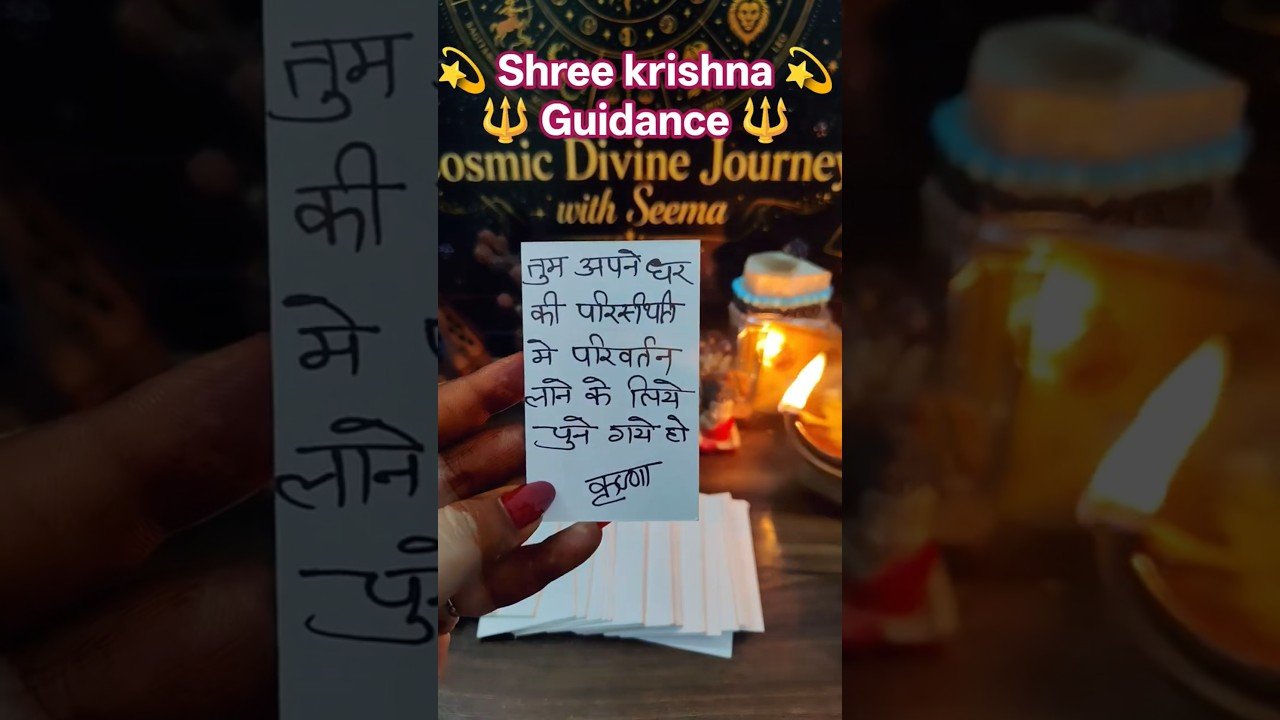 💫 Shree krishna 💫
🔱 Guidance 🔱
osmic Divine Journey
with Seema
तुम अपने घर
की परिस्थिती
मे परिवर्तन
लाने के लिये
चुने गये हो
कृष्णा
तुम
की
मे
लाने
चु
LEO